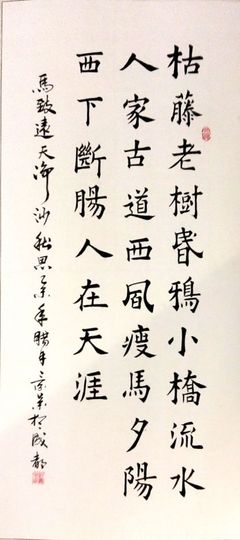 枯藤老樹昏鴉小橋流水
人家古道西風瘦馬夕陽
西下斷腸人在天涯
馬致遠天淨沙秋思